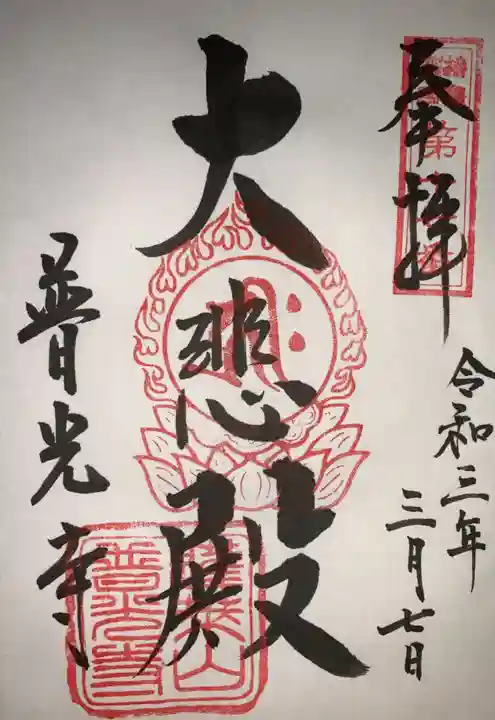 奉拝
令和三年
三月七日
大悲殿
普光寺